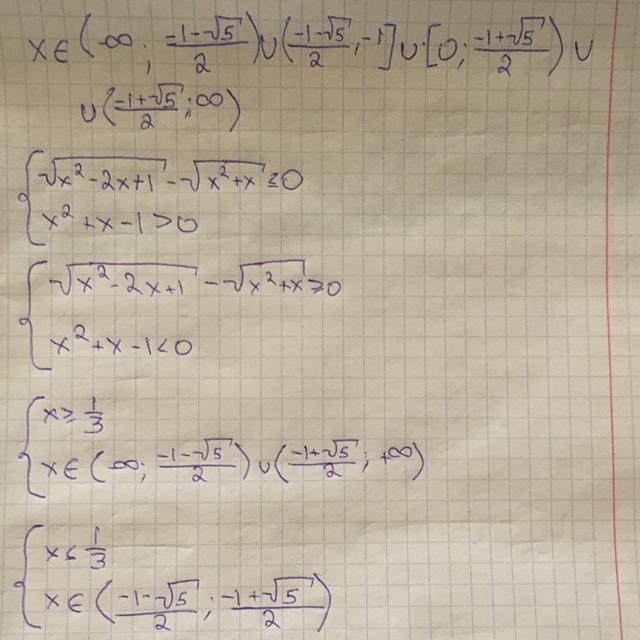 x ∈ (-∞; (-1-√5)/2) ∪ ((-1-√5)/2; -1] ∪ [0; (-1+√5)/2) ∪
∪ ((-1+√5)/2; ∞)
{ √(x²-2x+1) - √(x²+x) ≤ 0
x²+x-1>0
{ √(x²-2x+1) - √(x²+x) ≥ 0
x²+x-1<0
{ x ≥ 1/3
x ∈ (-∞; (-1-√5)/2) ∪ ((-1+√5)/2; +∞)
{ x ≤ 1/3
x ∈ ((-1-√5)/2; (-1+√5)/2)